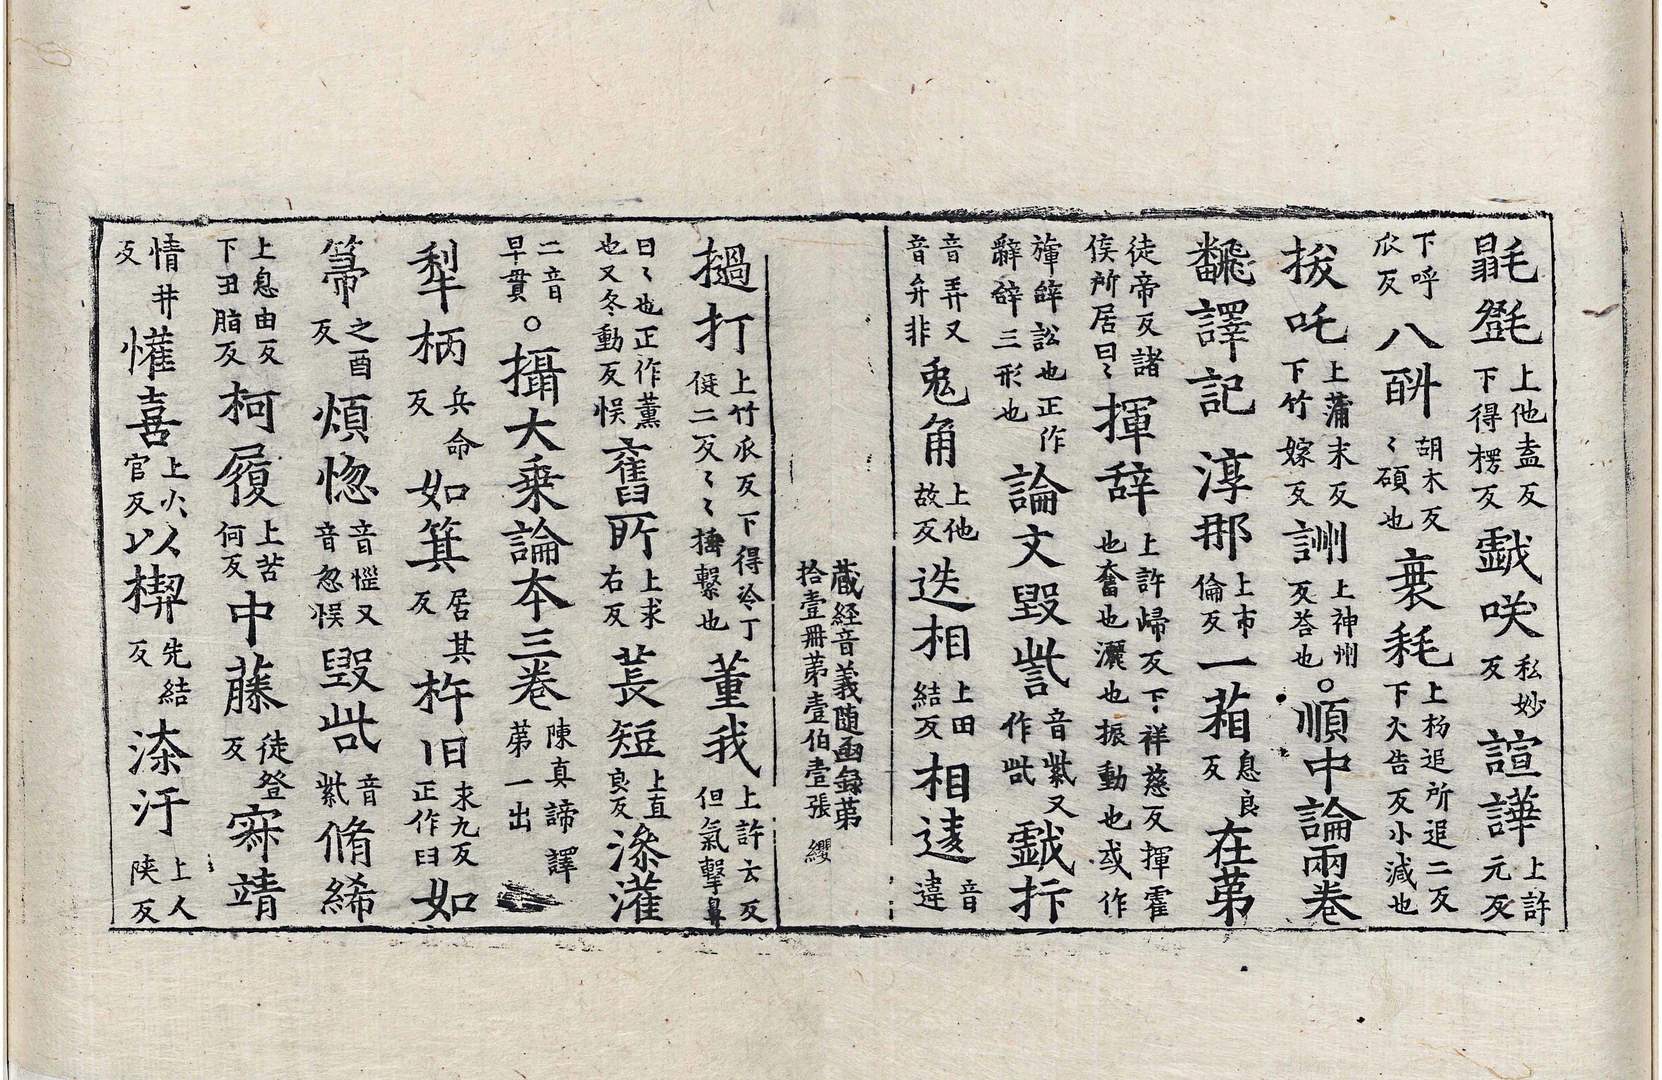 毾㲪上他盍反下得楞反戱咲私妙反諠譁上許元反
下呼瓜反八㪷胡木反〻碩也衰耗上杨追所追二反下火告反小減也
拔吒上蒲末反下竹嫁反詶上神州反荅也。順中論兩卷
飜譯記淳那上市倫反一葙息良反在苐
徒帝反諸侯所居曰〻揮辞上許歸反下祥慈反揮霍也奮也灑也振動也或作
㫌辝訟也正作辭辤三形也論文毀訾音紫又作呰戱抃
音弄又音弁非兎角上他故反迭相上田結反相逺音違
藏經音義随函録苐拾壹冊苐壹伯壹張 纓
撾打上竹瓜反下得冷丁侹二反〻〻捶繫也董我上許云反但氣擊鼻
曰〻也正作薰也又冬動反悮舊所上求右反萇短上直良反㵕灌
二音早貫。攝大乗論夲三卷陳真諦譯苐一出
犁柄兵命反如箕居其反杵旧求九反正作臼如
箒之酉反煩惚音惱又音忽悮毀呰音紫脩絺
上息由反下丑脂反柯履上苦何反中藤徒登反寐靖
情井反懽喜上火官反以楔先結反㓒汙上人陕反